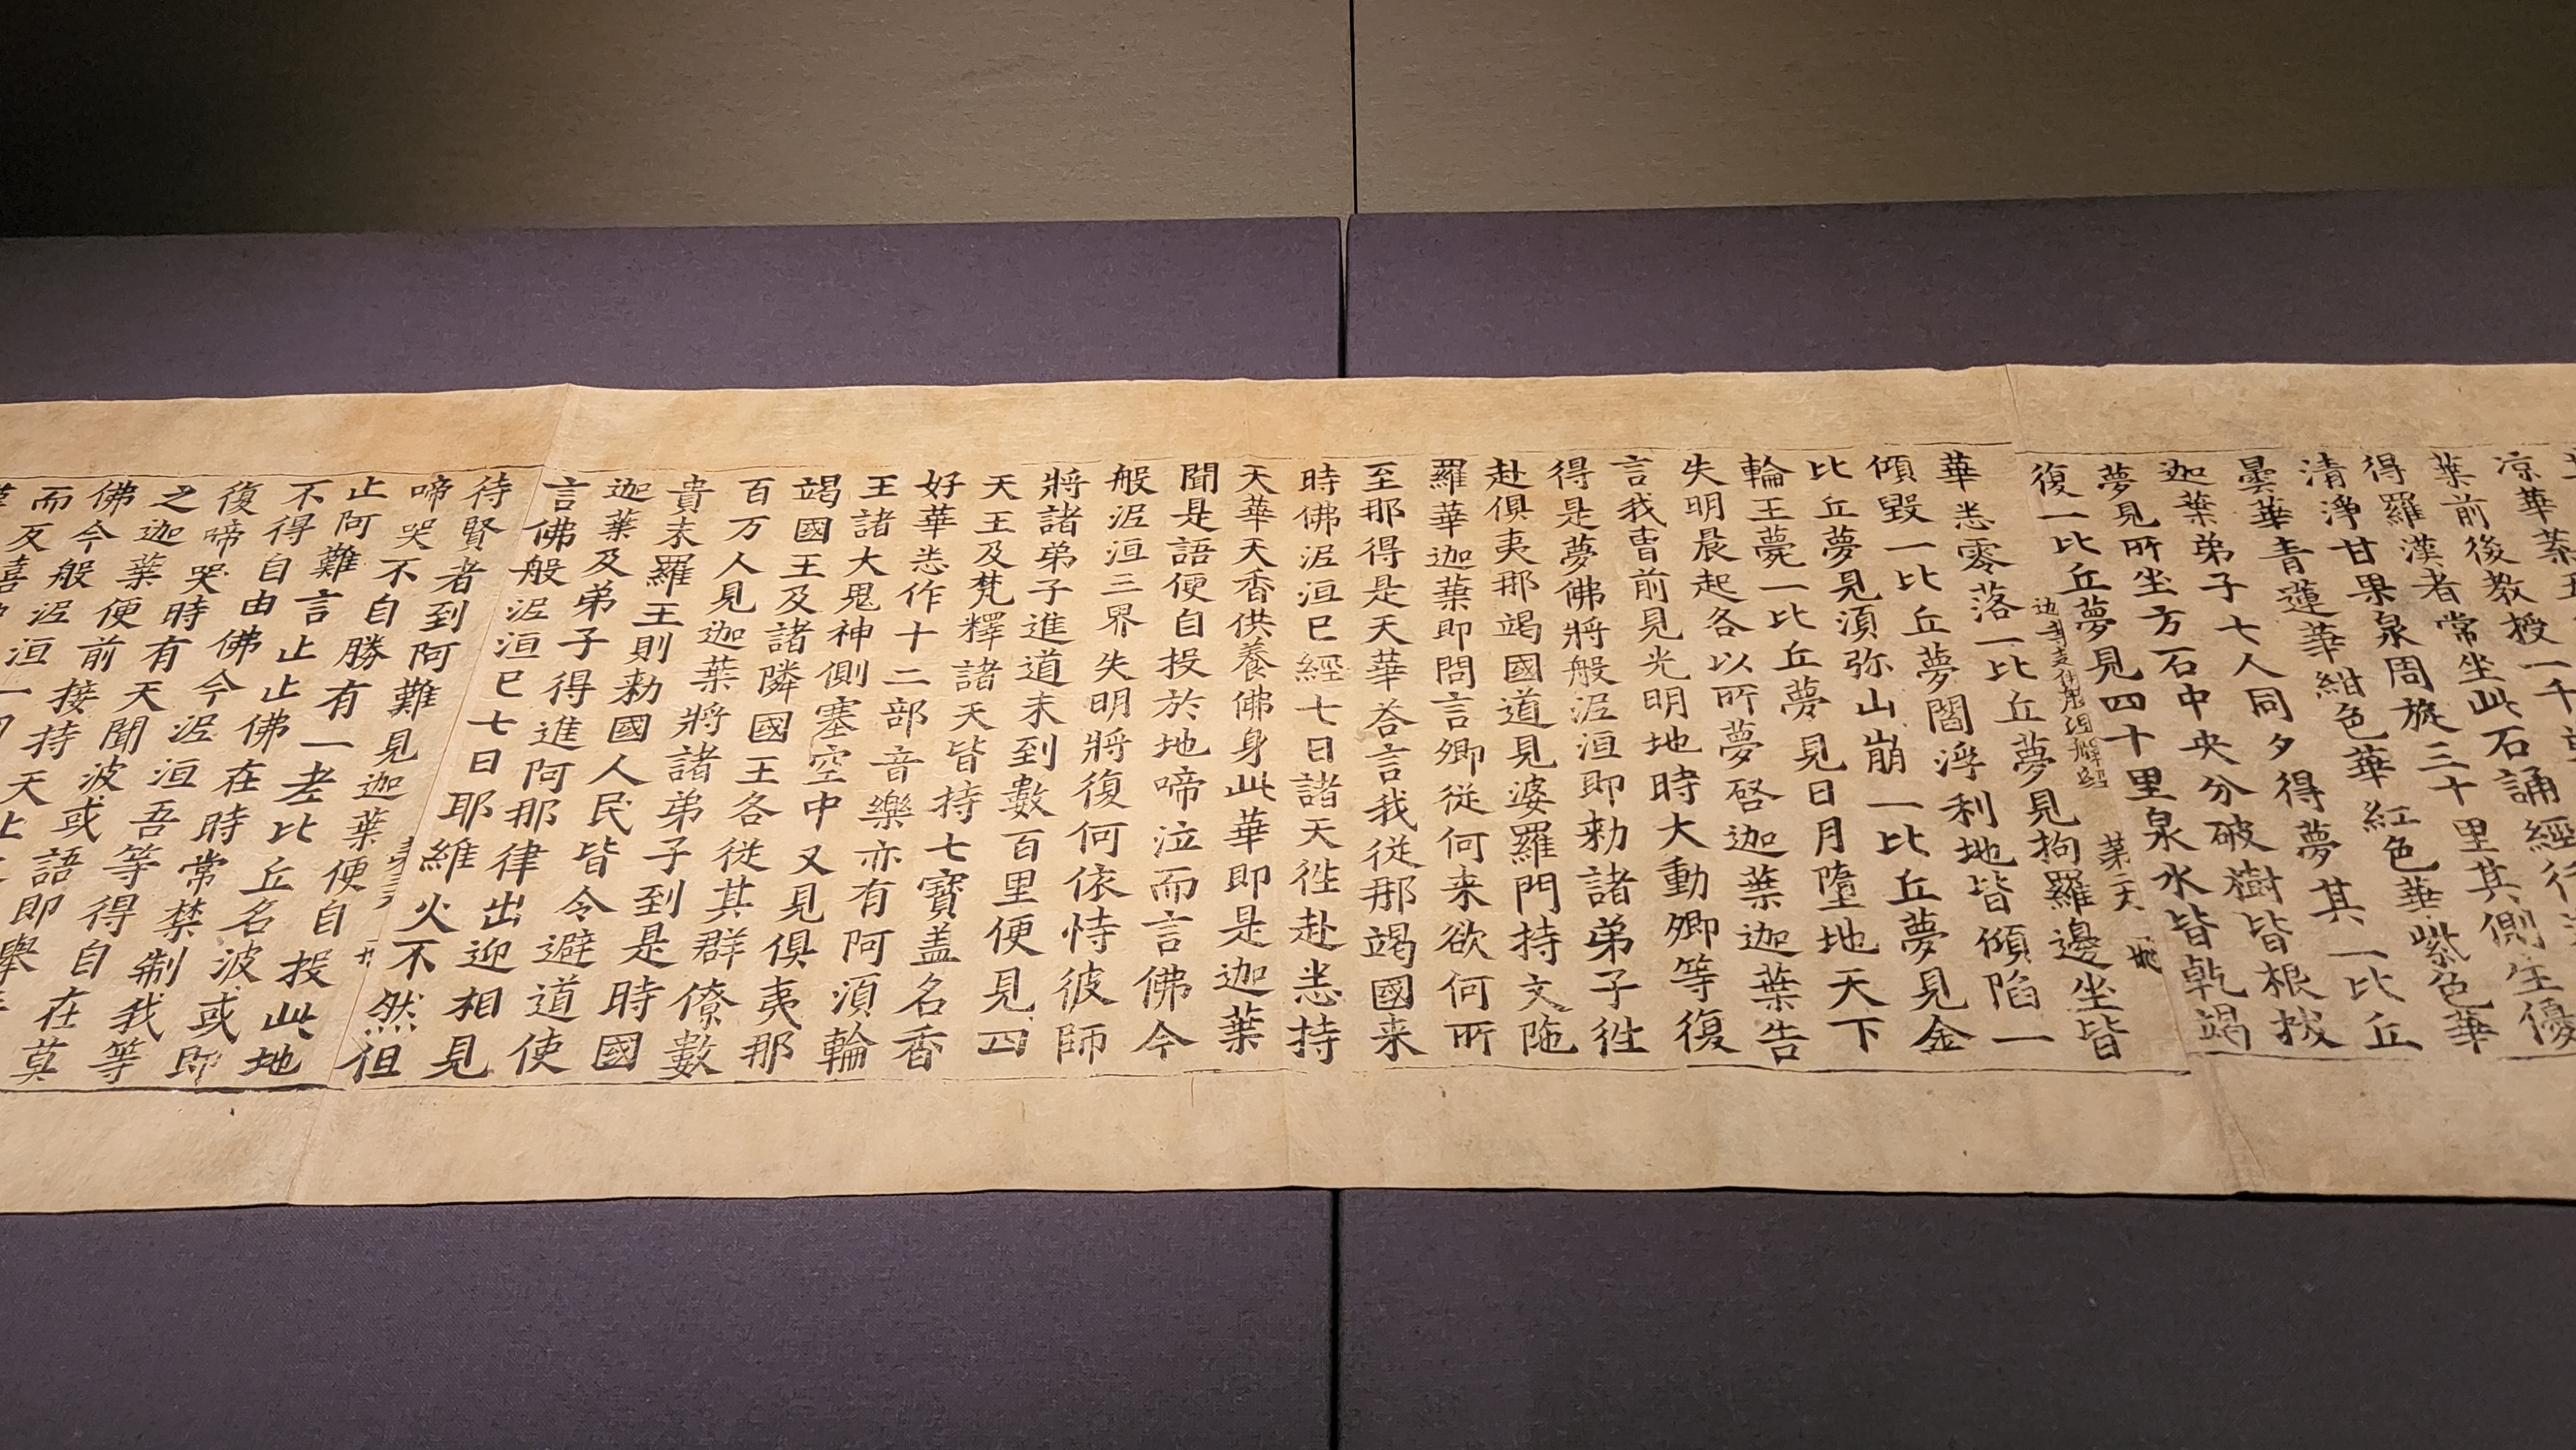 凉華
葉前後教授一千
得羅漢者常坐此石誦經行
清淨甘果泉周旋三十里其側生優
曇華青蓮華紺色華紅色華紫色華
迦葉弟子七人同夕得夢其一比丘
夢見所坐方石中央分破樹皆根拔
復一比丘夢見四十里泉水皆乹竭
華悉零落一比丘夢見拘羅邊坐皆
傾毀一比丘夢閻浮利地皆傾陷一
比丘夢見湏弥山崩一比丘夢見金
輪王薨一比丘夢見日月墮地天下
失明晨起各以所夢啓迦葉迦葉告
言我曺前見光明地時大動卿等復
得是夢佛將般泥洹即勑諸弟子往
赴俱夷那竭國道見婆羅門持文陁
羅華迦葉即問言卿従何来欲何所
至那得是天華荅言我従那竭國来
時佛泥洹已經七日諸天往赴悉持
天華天香供養佛身此華即是迦葉
聞是語便自投於地啼泣而言佛今
般泥洹三界失明將復何依恃彼師
將諸弟子進道未到數百里便見四
天王及梵釋諸天皆持七寶盖名香
好華悉作十二部音樂亦有阿湏輪
王諸大鬼神側塞空中又見俱夷那
竭國王及諸隣國王各従其群僚數
百万人見迦葉將諸弟子到是時國
貴末羅王則勑國人民皆令避道使
迦葉及弟子得進阿那律出迎相見
言佛般泥洹已七日耶維火不然但
待賢者到阿難見迦葉便自投此地
啼哭不自勝有一老比丘名波或即
止阿難言止止佛在時常禁制我等
不得自由佛今泥洹吾等得自在莫
復啼哭時有天聞波或語即舉
之迦葉便前接持天止
佛今般泥洹一
而反喜